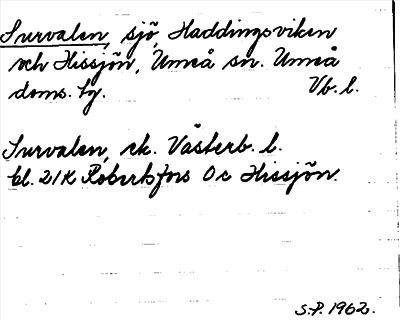 Survalen, sjö, Haddingsviken
och Hissjön, Umeå sn. Umeå
doms. tg. Vb. l.
Survalen, ek. Västerb. l.
bl. 21K Robertsfors 0c Hissjön.
S.P. 1962.